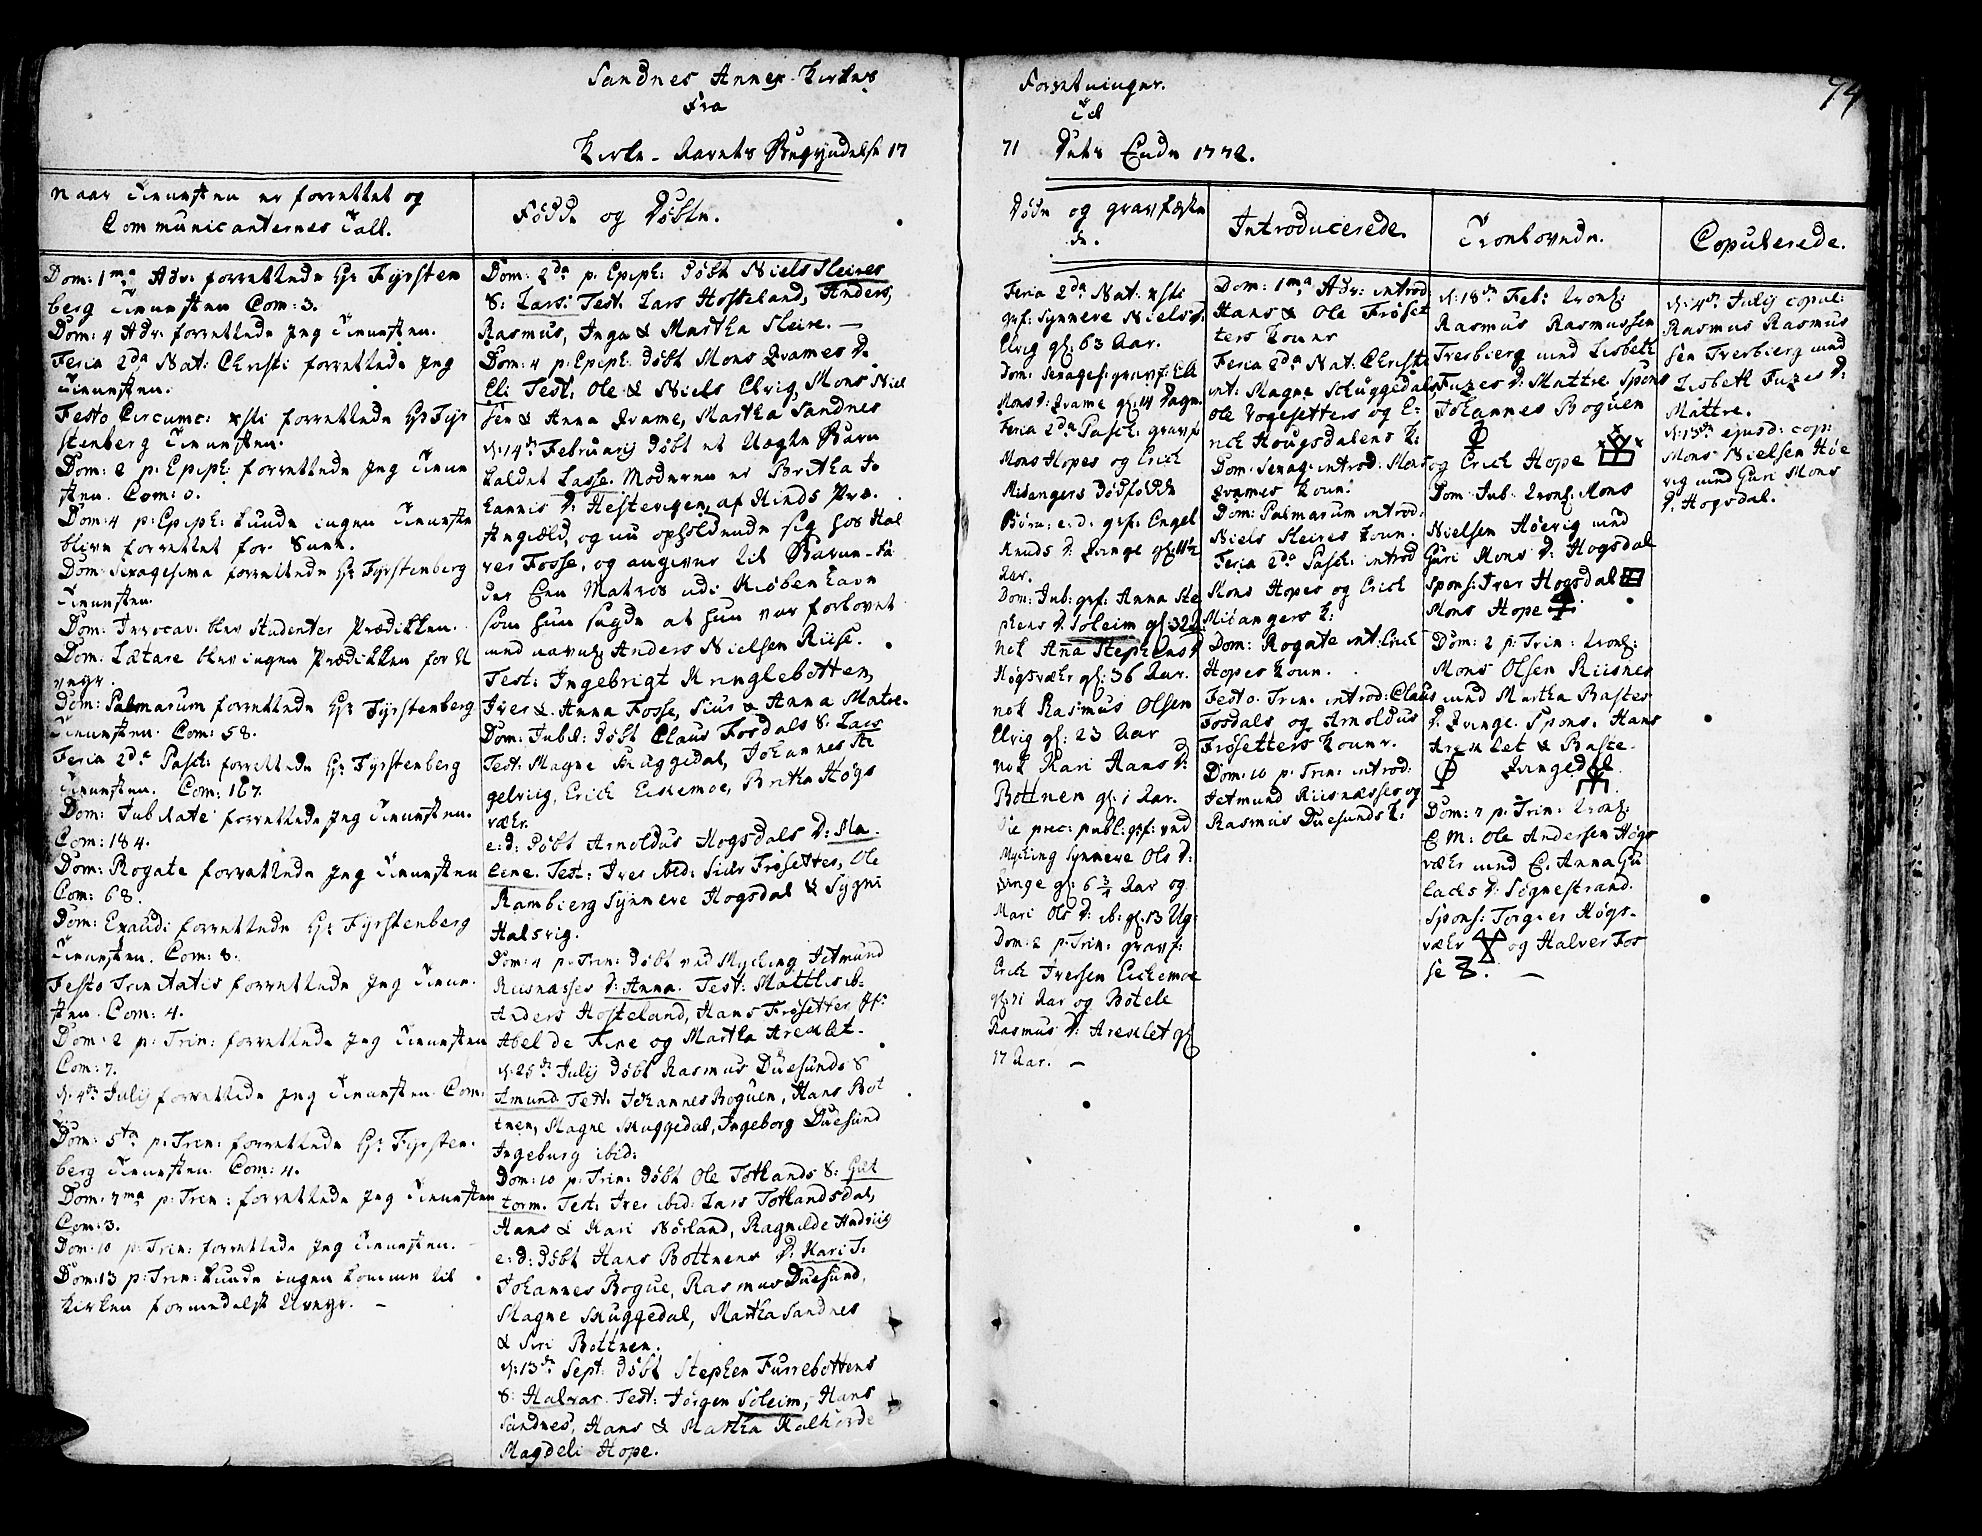 Sandnes Annex-Kirkes
Fra
Kirke-Aarets Begyndelse 17
Forretninger.
Til
71 Dets Ende 1772.
74
Naar Tienesten er forrettet og
Communicanternes Tall.
Dom: 1ma Adv: forrettede Hr Fyrsten
berg Tienesten Com: 3.
Dom: 4 Adv: forrettede Jeg Tienesten.
Feria 2da Nat: Christi forrettede Jeg
Tienesten.
Festo Circumc: xsti forrettede Hr Fyr
stenberg Tienesten.
Dom: 2 p: Epiph: forrettede Jeg Tiene
sten. Com: 0.
Dom: 4 p: Epiph: kunde ingen Tieneste
blive forrettet for Snee.
Dom: Sexagesima forrettede Hr Fyrstenberg
Tienesten.
Dom: Invocav: blev Studenter Prædikken.
Dom: Lætare blev ingen Prædikken for U
veyr.
Dom: Palmarum forrettede Hr Fyrstenberg
Tienesten. Com: 58.
Feria 2da Pasch: forrettede Hr Fyrstenberg
Tienesten. Com: 167.
Dom: Jubilate forrettede Jeg Tienesten.
Com: 184.
Dom: Rogate forrettede Jeg Tienesten
Com: 68.
Dom: Exaudi forrettede Hr Fyrstenberg
Tienesten. Com: 8.
Festo Trinitatis forrettede Jeg Tiene-
sten. Com: 4.
Dom: 2 p: Trin: forrettede Jeg Tienesten
Com: 7.
d: 4de Julij forrettede Jeg Tienesten. Com:
Dom: 5ta p: Trin: forrettede Hr Fyrsten-
berg Tienesten. Com: 4.
Dom: 7ma p: Trin: forrettede Jeg Tienesten
Com: 3.
Dom: 10 p: Trin: forrettede Jeg Tienesten.
Dom: 13 p: Trin: kunde ingen komme til
Kirken formedelst Uveyr. –
Fødde og Døbte.
Dom: 2da p: Epiph: døbt Niels Sleires
S: Lars: Test: Lars Hosteland, Anders,
Rasmus, Inga & Martha Sleire. –
Dom: 4 p: Epiph: døbt Mons Qvames D:
Eli Test: Ole & Niels Elvig, Mons Niel
sen & Anna Qvame, Martha Sandnes
d: 14de Februarij døbt et Uægte Barn
kaldet Lasse. Moderen er Britha Jo
hannis D: Hestevigen, af Hinds Præ-
stegield, og nu opholdende sig hos Hal
ver Fosse, og angiver til Barne-Fa
der Een Matros udi Kiøbenhavn
som hun sagde at hun var forlovet
med navnl: Anders Nielsen Riise.
Test: Ingebrigt Kringlebotten,
Iver & Anna Fosse, Siur & Anna Matre.
Dom: Jubil: døbt Claus Fosdals S: Lars
Test: Magne Skuggedal, Johannes In
gelviig, Erich Eikemoe, Britha Høgs
vær.
e: d: døbt Arnoldus Hogsdals D: Ma-
lene. Test: Iver ibid: Siur Frøsettes, Ole
Rambierg Synneve Hogsdal & Sygni
Halsvig.
Dom: 4 p: Trin: døbt ved Mycking Jetmund
Riisnæsses D: Anna. Test: Matthis ib:
Anders Hosteland, Hans Frøsetter Hr
Abel de Fine og Martha Areklet.
d: 25de Julij døbt Rasmus Duesunds S
Amund Test: Johannes Boguen, Hans Bot
tnen, Magne Skuggedal, Ingeborg Duesund
Ingeburg ibid:
Dom: 10 p: Trin: døbt Ole Totlands S: Gut
torm. Test: Iver ibid: Lars Totlandsdal,
Hans & Kari Nørland, Ragnilde Andviig
e: d: døbt Hans Bottnens D: Kari T:
Johannes Bogue, Rasmus Duesund,
Magne Skuggedal, Martha Sandnes
& Siri Bottnen.
d: 13de Sept: døbt Stephen Furrebottens
S: Halvar Test: Jørgen Soleim, Hans
Sandnes, Hans & Martha Kalhørde
Magdeli Hope.
Døde og gravfæste
de.
Feria 2da Nat: xsti
grf: Synneve Niels D:
Elvig gl: 63 Aar.
Dom: Sexages: gravf: Eli
Mons D: Qvame gl: 14 Dage
Feria 2da Pasch: gravf:
Mons Hopes og Erich
Midangers Dødfødde
Børn: e: d: grf: Engel
Knuds D: Qvinge gl: 11½
Aar.
Dom: Jub: grf: Anna Ste
phens D: Soleim gl: 32 A:
nok Anna Stephens D:
Høgsvær gl: 36 Aar.
nok Rasmus Olsen
Elvig gl: 23 Aar
nok Kari Hans D:
Bottnen gl: 1 Aar.
Die prec: publ: grf: ved
Mycking Synneve Ols D:
Qvinge gl: 6 3/4 Aar og
Mari Ols D: ib: gl: 13 Ug:
Dom: 2 p: Trin: gravf:
Erich Iversen Eickemoe
gl: 71 Aar og Botele
Rasmus D: Areklet gl:
17 Aar. –
Introducerede.
Dom: 1ma Adv: introd
Hans & Ole Frøset
ters Koner
Feria 2da Nat: Christi
int: Magne Skuggedals,
Ole Vogesetters og E-
rich Hougsdalens K:
Dom: Sexag: introd: Mons
Qvames Kone.
Dom: Palmarum introd:
Niels Sleires Kone.
Feria 2da Pasch: introd
Mons Hopes og Erich
Midangers K:
Dom: Rogate int: Erich
Hopes Kone.
Festo Trin: introd: Claus
Fosdals og Arnoldus
Frøsetters Koner.
Dom: 10 p: Trin: introd:
Jetmund Riisnæsses og
Rasmus Duesunds K:
Trolovede.
d: 18de Feb: trol:
Rasmus Rasmussen
Tverbierg med Lisbeth
Fuzes D: Mattre. Spons
Johannes Boguen
og Erich Hope
Dom: Jub: trol: Mons
Nielsen Høevig med
Guri Mons D: Hogsdal
Spons: Iver Hogsdal
Mons Hope
Dom: 2 p: Trin: trol:
Mons Olsen Riisnes
med Martha Bastes
D: Qvinge. Spons. Hans
Areklet & Baste
Qvingedal.
Dom: 7 p: Trin: trol:
E: M: Ole Andersen Høgs
vær med E. Anna Gu
lachs D: Sognestrand.
Spons: Torgier Høgs-
vær og Halver Fos
se. –
Copulerede.
d: 4de Julij copul:
Rasmus Rasmus
sen Tverbierg med
Lisbeth Fuzes D:
Mattre.
d: 13de ejusd: cop:
Mons Nielsen Høe
vig med Guri Mons
D: Hogsdal.